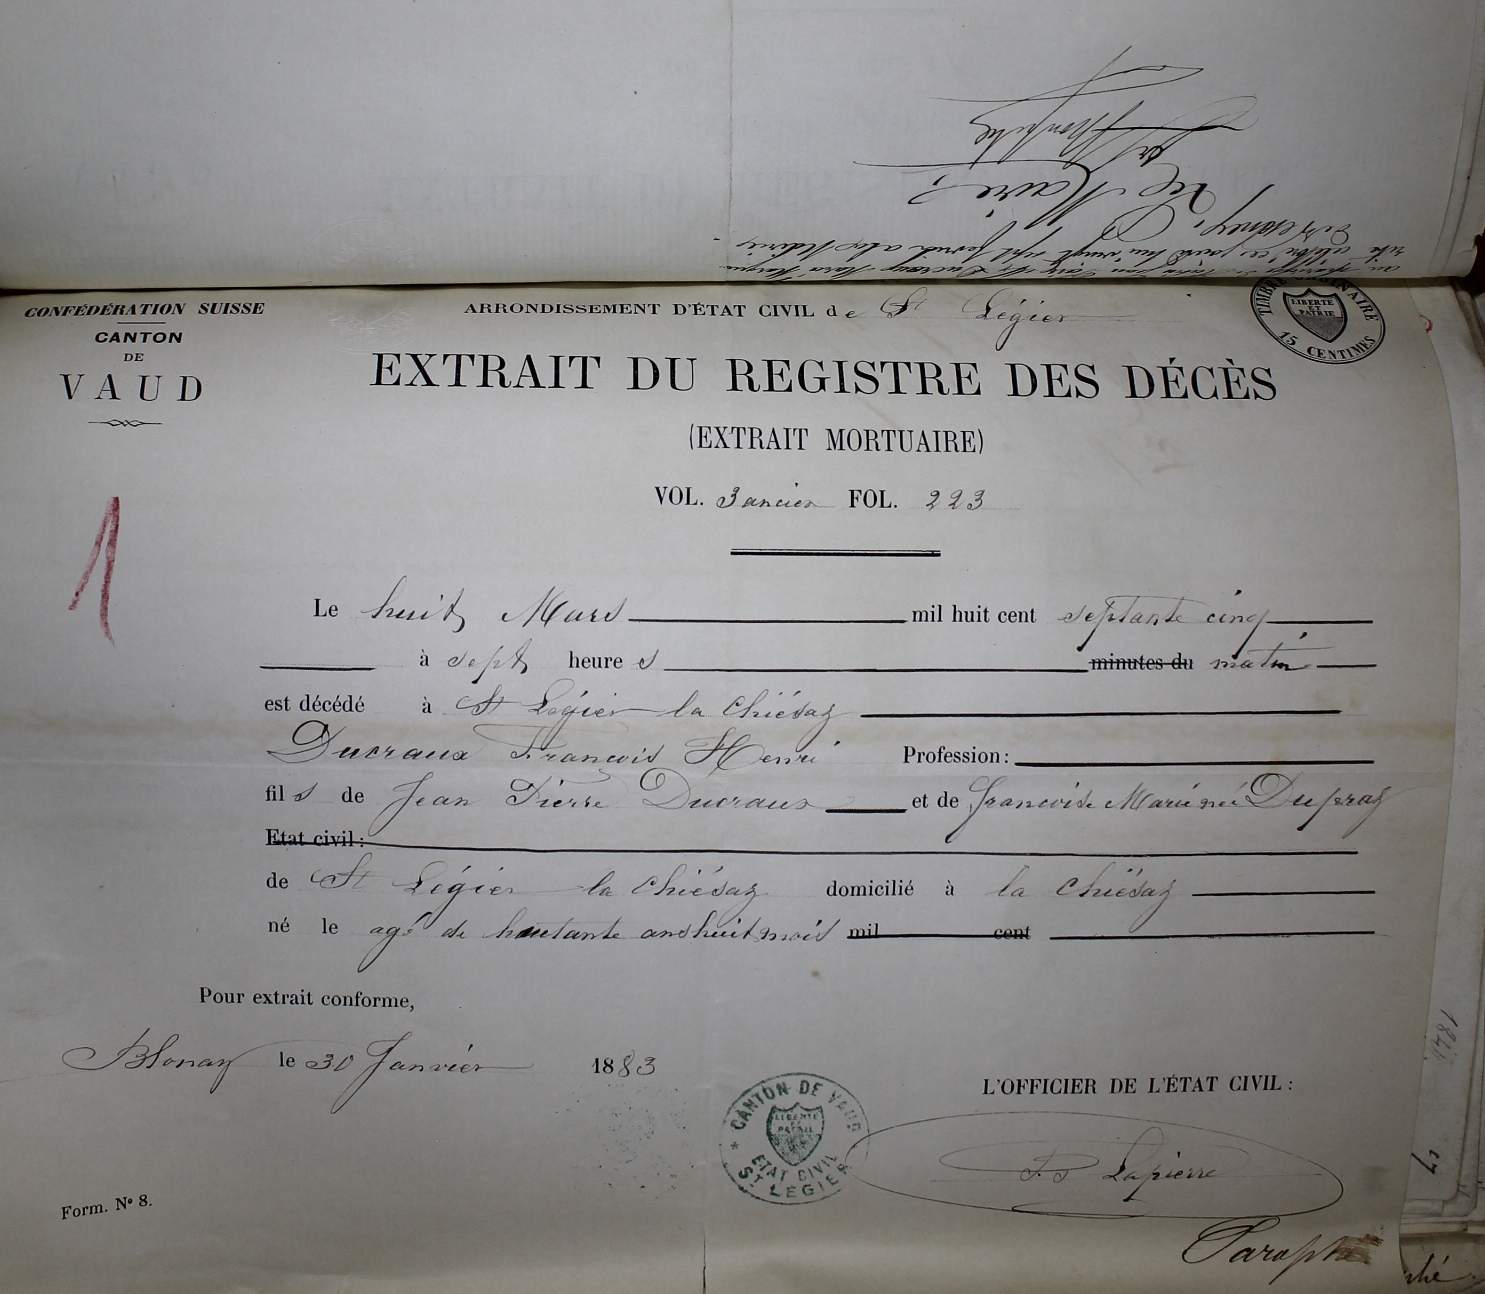 Le Maire
CONFÉDÉRATION SUISSE
CANTON
DE
VAUD
ARRONDISSEMENT D'ÉTAT CIVIL de St Légier
TIMBRE
15 CENTIMES
LIBERTÉ
ET
PATRIE
EXTRAIT DU REGISTRE DES DÉCÈS
(EXTRAIT MORTUAIRE)
VOL. 3 ancien FOL. 223
1
Le huit Mars mil huit cent septante cinq
à sept heures minutes du matin
est décédé à St Légier la Chiésaz
Ducraux François Henri Profession:
fils de Jean Pierre Ducraux et de Francoise Marie née Dupraz
Etat civil:
de St Légier la Chiésaz domicilié à la Chiésaz
né le agé de huitante ans huit mois mil cent
Pour extrait conforme,
Blonay le 30 Janvier 1883
L'OFFICIER DE L'ÉTAT CIVIL:
CANTON DE VAUD
LIBERTÉ
ET
PATRIE
ETAT CIVIL
ST LÉGIER
Lapierre
Form. No 8.